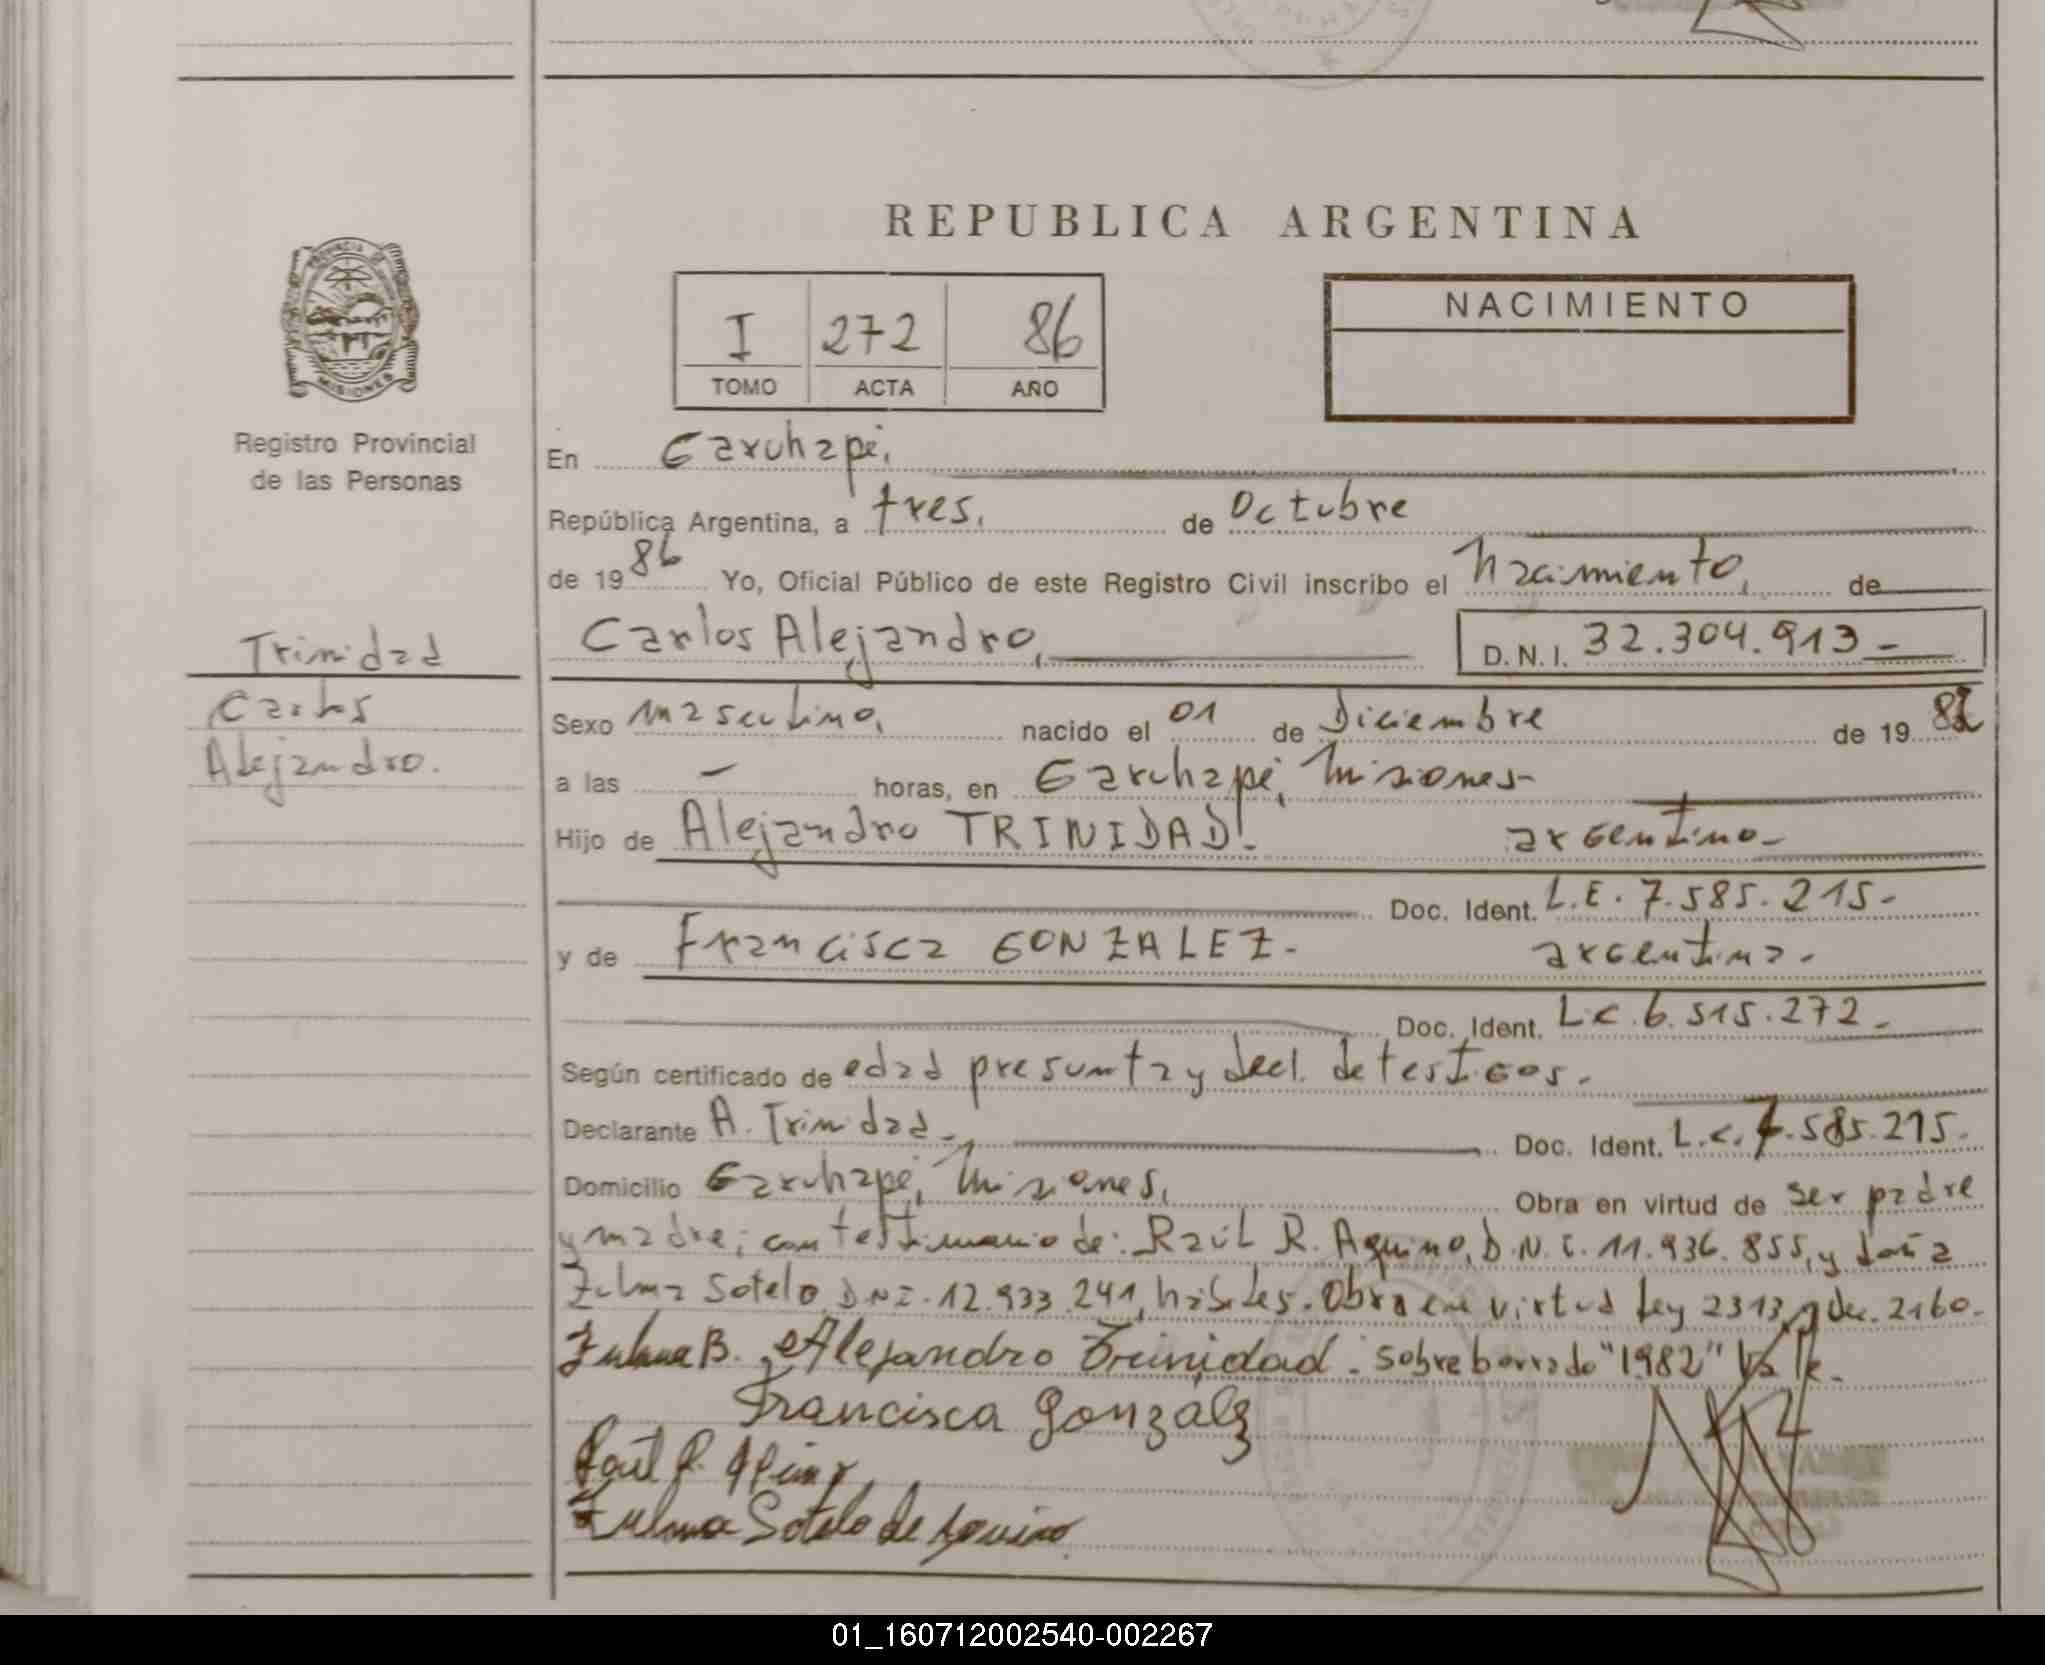 REPUBLICA ARGENTINA
I 272 86
TOMO ACTA AÑO
NACIMIENTO
PROVINCIA DE MISIONES
Registro Provincial
de las Personas
En Garuhapé,
República Argentina, a tres, de Octubre
de 1986 Yo, Oficial Público de este Registro Civil inscribo el nacimiento, de
Carlos Alejandro, D.N.I. 32.304.913-
Trinidad
Carlos
Alejandro.
Sexo masculino, nacido el 01 de Diciembre de 1982
a las - horas, en Garuhapé, Misiones-
Hijo de Alejandro TRINIDAD.- argentino-
Doc. Ident. L.E. 7.585.215-
y de Francisca GONZALEZ- argentina-
Doc. Ident. L.C. 6.515.272-
Según certificado de edad presunta y decl. de testigos.
Declarante A. Trinidad- Doc. Ident. L.E. 7.585.215-
Domicilio Garuhapé, Misiones, Obra en virtud de ser padre
y madre; con testimonio de: Raúl R. Aquino, D.N.I. 11.936.855, y doña
Zulma Sotelo DNI. 12.933.241, hábiles. Obra en virtud Ley 2313, y dec. 2160-
Zulma B. Alejandro Trinidad. Sobre borrado "1982" Vale.
Francisca Gonzalez
Raúl R. Aquino
Zulma Sotelo de Aquino
01_160712002540-002267